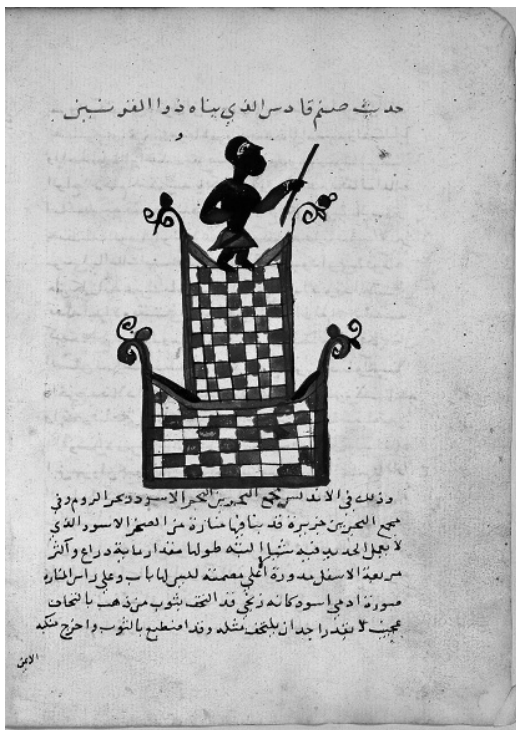 حديث صنم قادس الذي بناه ذوا القرنين
وذلك في الاندلس مجمع البحرين البحر الاسود وبحر الروم وفي
مجمع البحرين جزيرة قد بنا فيها منارة من الصخر الاسود الذي
لا يعمل الحديد فيه شيا البته طولها مقدار ماية دراع واكثر
مربعة الاسفل مدورة اعلي مصمته لليس لها باب وعلي راس المناره
صورة ادمي اسود كانه زنجي قد التحف بثوب من ذهب بالتحاف
عجيب لا يقدر احد ان يلتحف مثله وقد انطبع بالثوب واخرج منكبه
الايمن